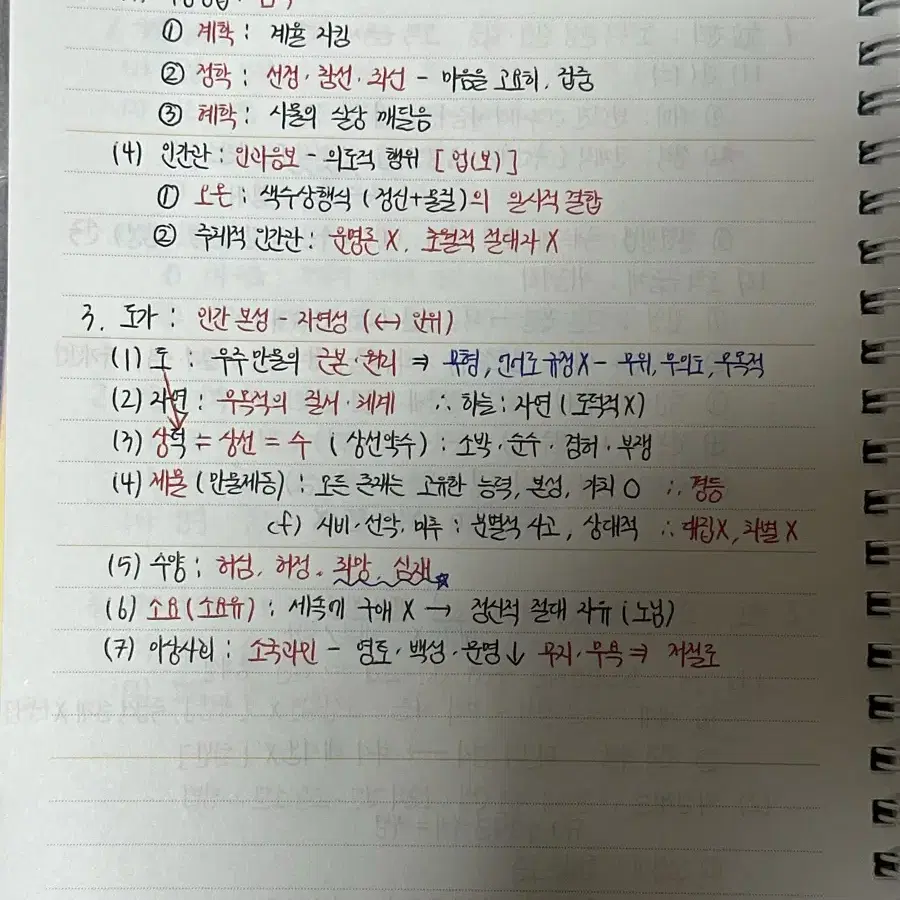 ① 계학 : 계율 지킴
② 정학 : 선정·참선·좌선 - 마음을 고요히, 집중
③ 혜학 : 사물의 실상 깨달음
(4) 인간관 : 인과응보 - 의도적 행위 [업(보)]
① 오온 : 색수상행식 (정신+물질)의 일시적 결합
② 주체적 인간관 : 운명론 X, 초월적 절대자 X
3. 도가 : 인간 본성 - 자연성 (↔ 인위)
(1) 도 : 우주 만물의 근본·원리 ⇒ 무형, 언어로 규정X - 무위, 무의도, 무목적
(2) 자연 : 무목적의 질서·체계 ∴ 하늘 : 자연 (도덕적X)
(3) 상덕 = 상선 = 수 (상선약수) : 소박·순수·겸허·부쟁
(4) 제물 (만물제동) : 모든 존재는 고유한 능력, 본성, 가치 O ∴ 평등
cf) 시비·선악·미추 : 분별적 사고, 상대적 ∴ 대립X, 차별 X
(5) 수양 : 허심, 허정, 좌망, 심재☆
(6) 소요(소요유) : 세속에 구애 X → 정신적 절대 자유 (노닒)
(7) 이상사회 : 소국과민 - 영토·백성·문명↓ 무지·무욕 ⇒ 저절로